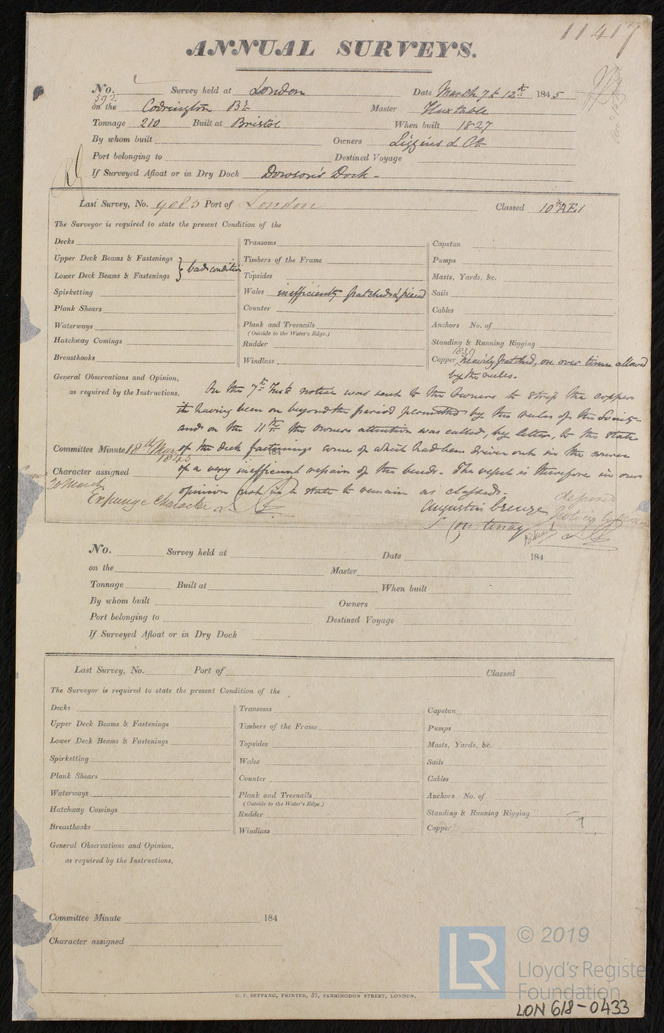 11417
ANNUAL SURVEYS.
No. 592 Survey held at London Date March 7 & 12th 1845
on the Codrington Bk Master Huxtable
Tonnage 210 Built at Bristol When built 1827
By whom built Owners Liggins & Co
Port belonging to Destined Voyage
If Surveyed Afloat or in Dry Dock Dowson's Dock -
Last Survey, No. 9083 Port of London Classed 10 Æ1
The Surveyor is required to state the present Condition of the
Decks Transoms Capstan
Upper Deck Beams & Fastenings } bad condition Timbers of the Frame Pumps
Lower Deck Beams & Fastenings Topsides Masts, Yards, &c.
Spirketting Wales inefficiently patched & pieced Sails
Plank Shears Counter Cables
Waterways Plank and Treenails Anchors No. of
(Outside to the Water's Edge.)
Hatchway Comings Rudder Standing & Running Rigging
Breasthooks Windlass Copper 1837 heavily patched, on over time allowed
by the rules.
General Observations and Opinion,
as required by the Instructions.
On the 7th Inst notice was sent to the Owners to strip the copper
it having been on beyond the period permitted by the rules of the Society
and on the 11th the owners attention was called, by letter, to the state
of the deck fastenings some of which had been driven out in the
of a very inefficient repair of the bends. The vessel is therefore in our
opinion not in a state to remain as classed.
Committee Minute 18th March 1845
Character assigned
20 March
Expunge Character
Augustin Creuze
J Courtenay
No. Survey held at Date 184
on the Master
Tonnage Built at When built
By whom built Owners
Port belonging to Destined Voyage
If Surveyed Afloat or in Dry Dock
Last Survey, No. Port of Classed
The Surveyor is required to state the present Condition of the
Decks Transoms Capstan
Upper Deck Beams & Fastenings Timbers of the Frame Pumps
Lower Deck Beams & Fastenings Topsides Masts, Yards, &c.
Spirketting Wales Sails
Plank Shears Counter Cables
Waterways Plank and Treenails Anchors No. of
(Outside to the Water's Edge.)
Hatchway Comings Rudder Standing & Running Rigging
Breasthooks Windlass Copper
General Observations and Opinion,
as required by the Instructions.
Committee Minute 184
Character assigned
C. F. SEYFANG, PRINTER, 57, FARRINGDON STREET, LONDON.
LR
© 2019
Lloyd's Register
Foundation
LON 618-0433